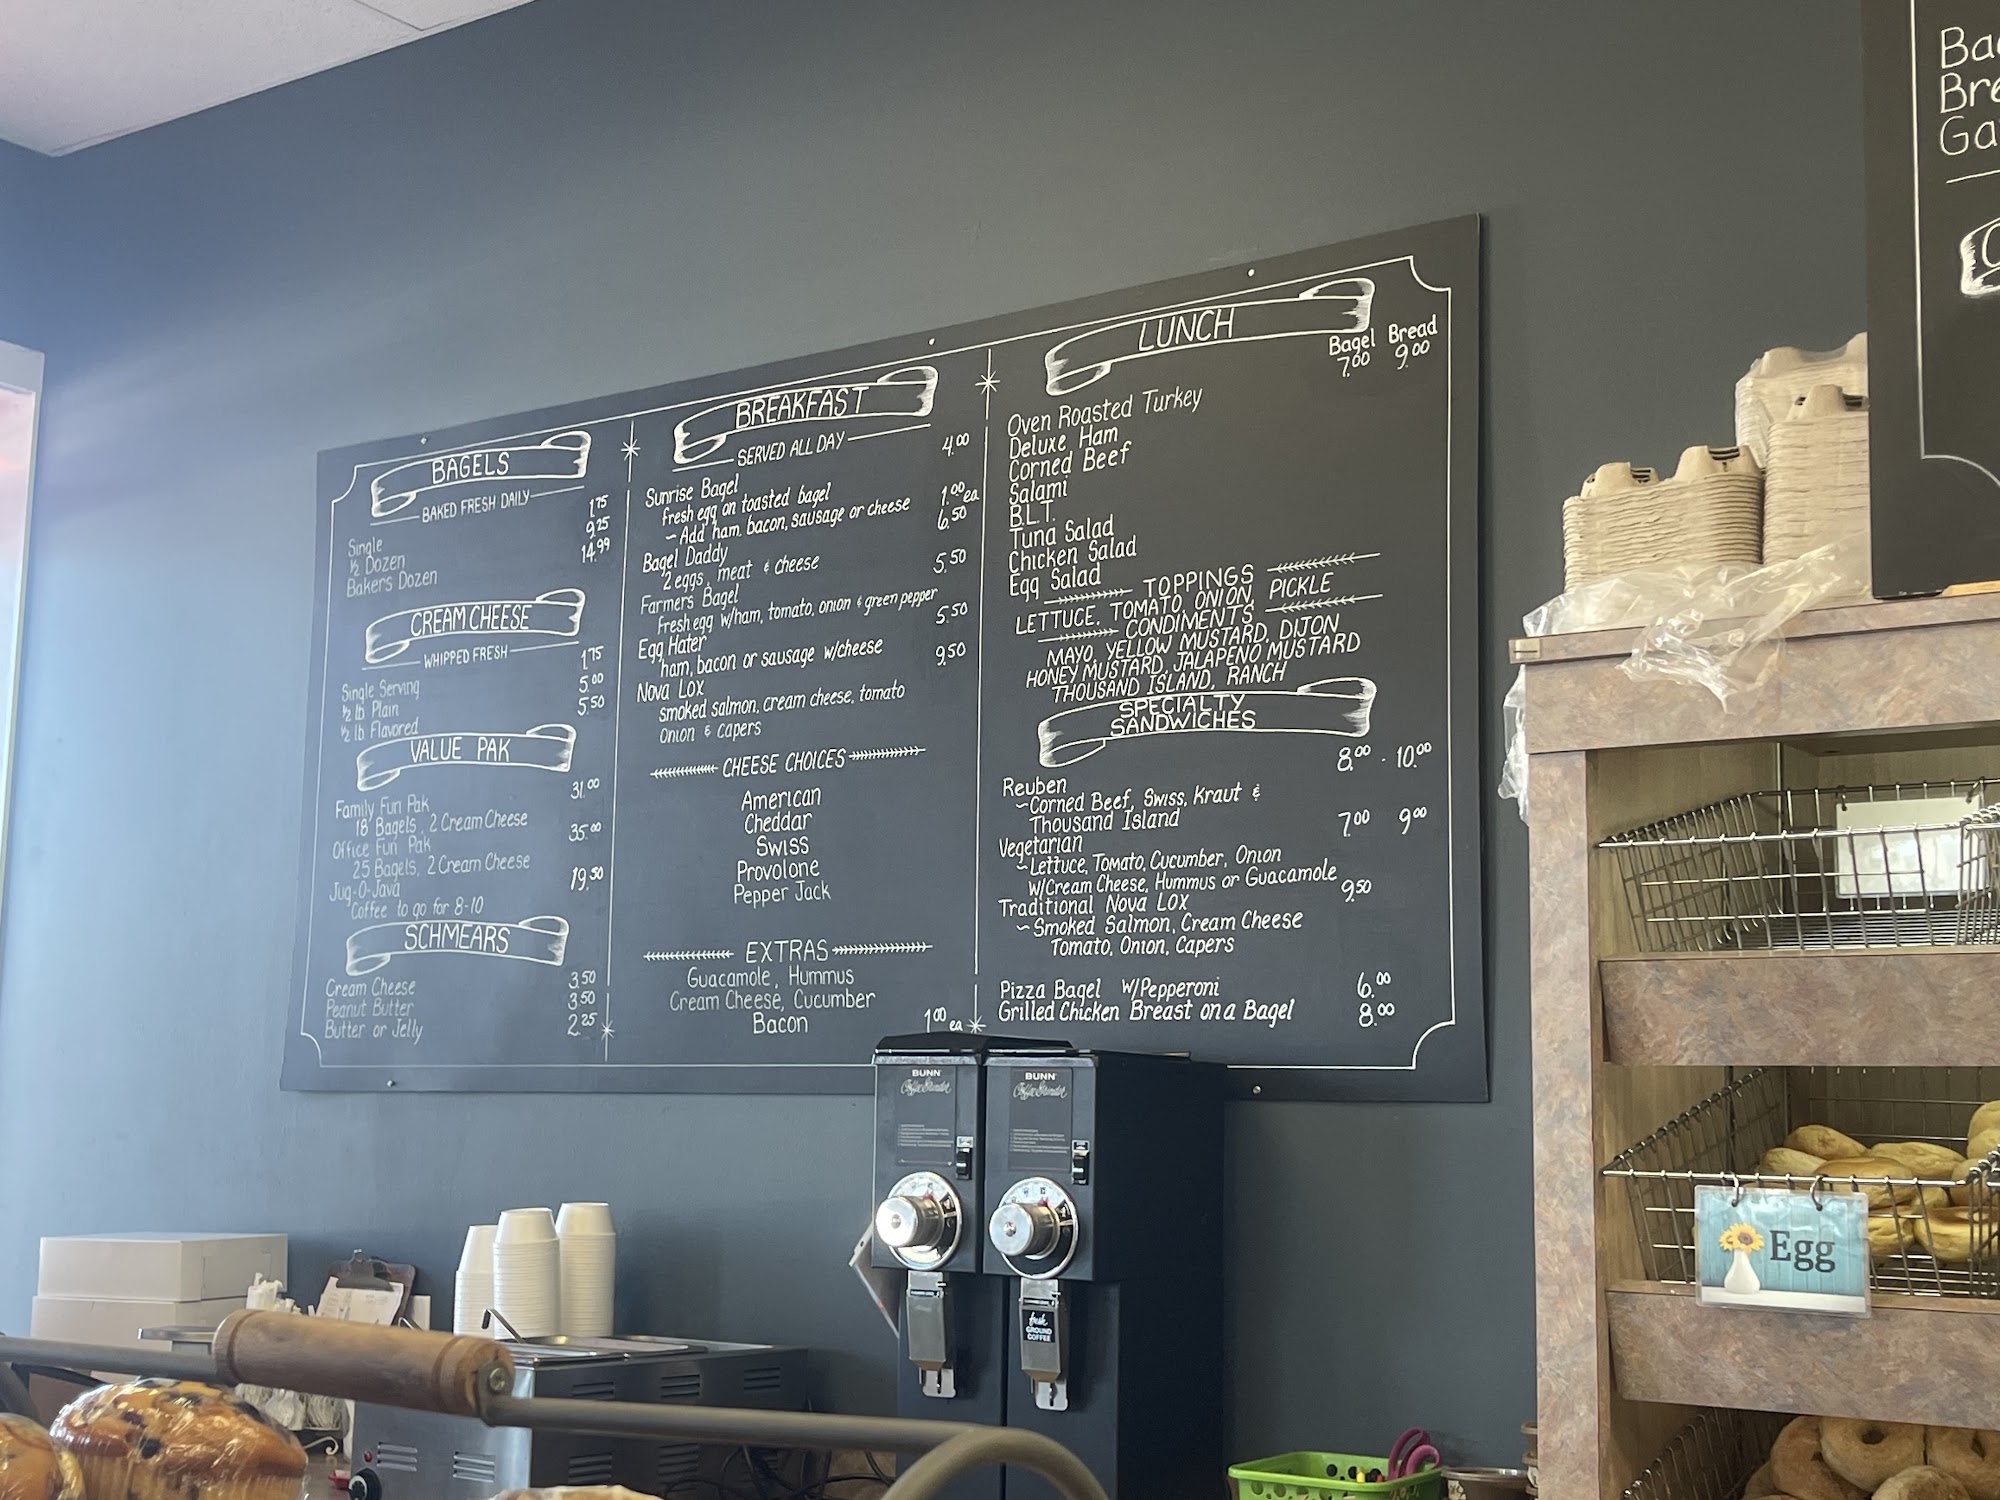 BAGELS
BAKED FRESH DAILY
Single 1.75
½ Dozen 9.25
Bakers Dozen 14.99
CREAM CHEESE
WHIPPED FRESH
Single Serving 1.75
½ lb Plain 5.00
½ lb Flavored 5.50
VALUE PAK
Family Fun Pak 31.00
18 Bagels, 2 Cream Cheese
Office Fun Pak 35.00
25 Bagels, 2 Cream Cheese
Jug-O-Java 19.50
Coffee to go for 8-10
SCHMEARS
Cream Cheese 3.50
Peanut Butter 3.50
Butter or Jelly 2.25
BREAKFAST
SERVED ALL DAY
Sunrise Bagel 4.00
fresh egg on toasted bagel
~ Add ham, bacon, sausage or cheese 1.00 ea
Bagel Daddy 6.50
2 eggs, meat & cheese
Farmers Bagel 5.50
Fresh egg w/ham, tomato, onion & green pepper
Egg Hater 5.50
ham, bacon or sausage w/cheese
Nova Lox 9.50
smoked salmon, cream cheese, tomato
Onion & capers
CHEESE CHOICES
American
Cheddar
Swiss
Provolone
Pepper Jack
EXTRAS
Guacamole, Hummus
Cream Cheese, Cucumber
Bacon 1.00 ea
LUNCH
Bagel Bread
7.00 9.00
Oven Roasted Turkey
Deluxe Ham
Corned Beef
Salami
B.L.T.
Tuna Salad
Chicken Salad
Egg Salad
TOPPINGS
LETTUCE, TOMATO, ONION, PICKLE
CONDIMENTS
MAYO, YELLOW MUSTARD, DIJON
HONEY MUSTARD, JALAPENO MUSTARD
THOUSAND ISLAND, RANCH
SPECIALTY
SANDWICHES
Reuben 8.00 - 10.00
~Corned Beef, Swiss, Kraut &
Thousand Island
Vegetarian 7.00 9.00
~Lettuce, Tomato, Cucumber, Onion
W/Cream Cheese, Hummus or Guacamole
Traditional Nova Lox 9.50
~Smoked Salmon, Cream Cheese
Tomato, Onion, Capers
Pizza Bagel W/Pepperoni 6.00
Grilled Chicken Breast on a Bagel 8.00
BUNN
Coffee Grinder
BUNN
Coffee Grinder
fresh
GROUND
COFFEE
Egg